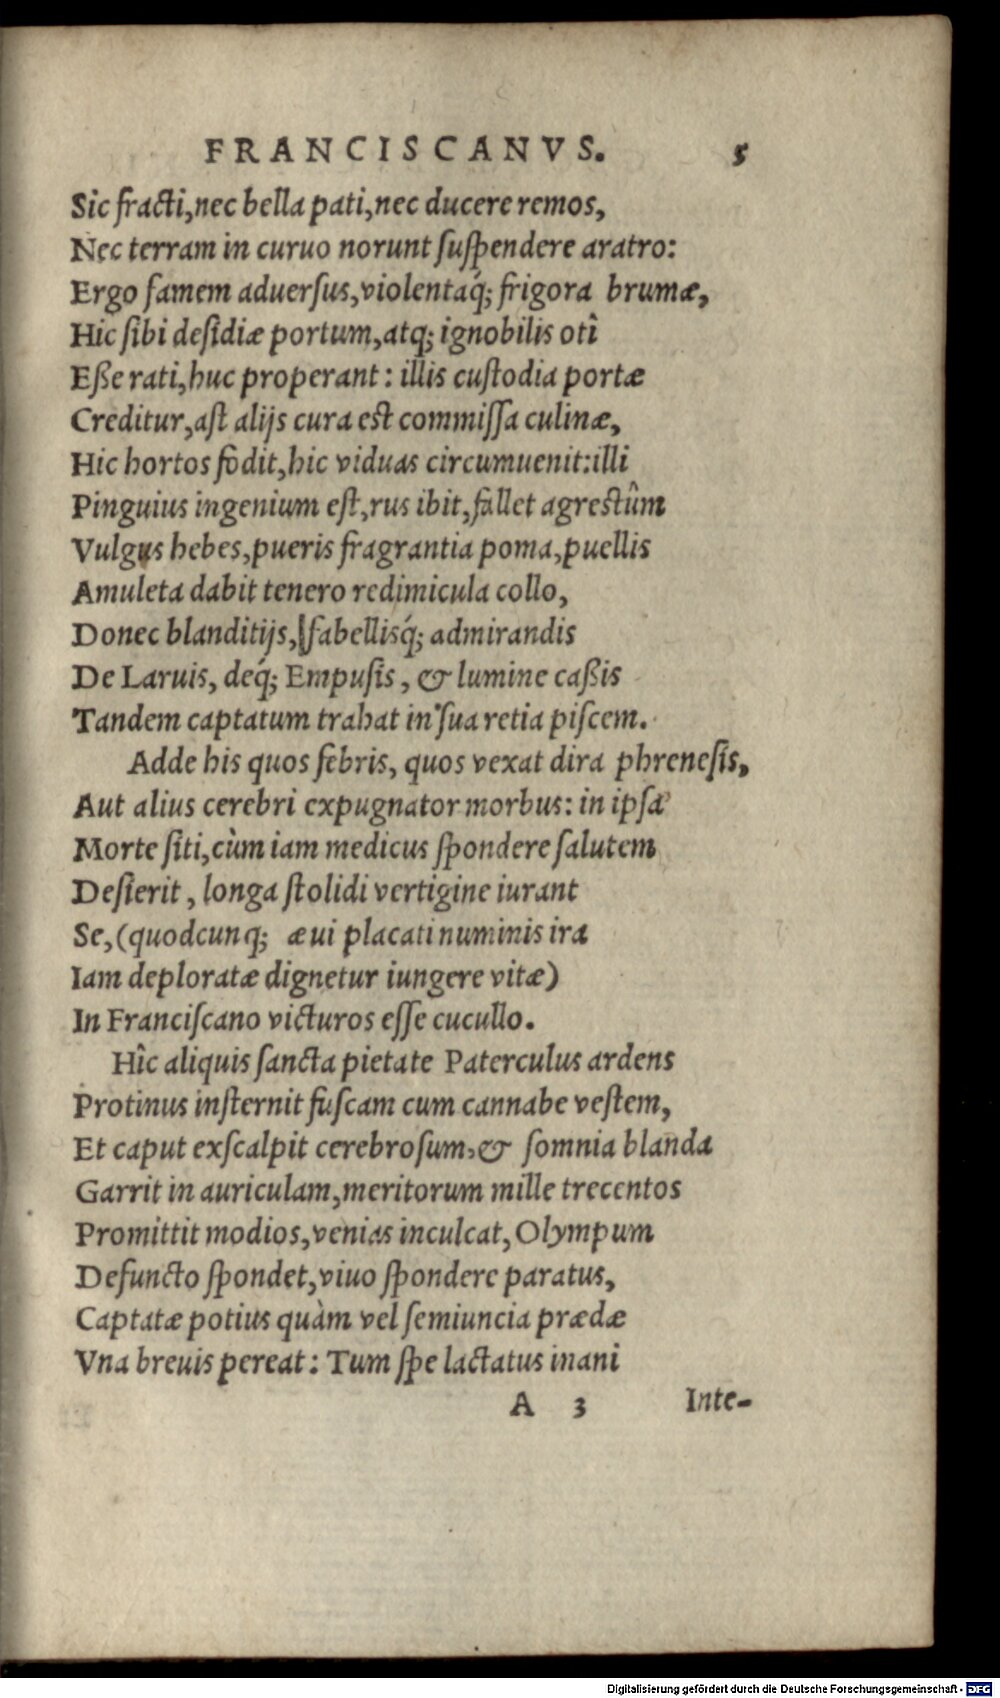 FRANCISCANVS. 5
Sic fracti, nec bella pati, nec ducere remos,
Nec terram in curuo norunt ſuſpendere aratro:
Ergo famem aduerſus, violentaq́; frigora brumæ,
Hic ſibi deſidiæ portum, atq; ignobilis otî
Eße rati, huc properant: illis cuſtodia portæ
Creditur, aſt alijs cura est commiſſa culinæ,
Hic hortos fodit, hic viduas circumuenit: illi
Pinguius ingenium eſt, rus ibit, fallet agrestûm
Vulgus hebes, pueris fragrantia poma, puellis
Amuleta dabit tenero redimicula collo,
Donec blanditijs, fabellisq́; admirandis
De Laruis, deq́; Empuſis, & lumine caßis
Tandem captatum trahat in ſua retia piſcem.
Adde his quos febris, quos vexat dira phreneſis,
Aut alius cerebri expugnator morbus: in ipſa
Morte ſiti, cùm iam medicus ſpondere ſalutem
Deſierit, longa ſtolidi vertigine iurant
Se, (quodcunq; æui placati numinis ira
Iam deploratæ dignetur iungere vitæ)
In Franciſcano victuros eſſe cucullo.
Hîc aliquis ſancta pietate Paterculus ardens
Protinus inſternit fuſcam cum cannabe veſtem,
Et caput exſcalpit cerebroſum, & ſomnia blanda
Garrit in auriculam, meritorum mille trecentos
Promittit modios, venias inculcat, Olympum
Defuncto ſpondet, viuo ſpondere paratus,
Captatæ potius quàm vel ſemiuncia prædæ
Vna breuis pereat: Tum ſpe lactatus inani
A 3 Inte-
Digitalisierung gefördert durch die Deutsche Forschungsgemeinschaft - DFG